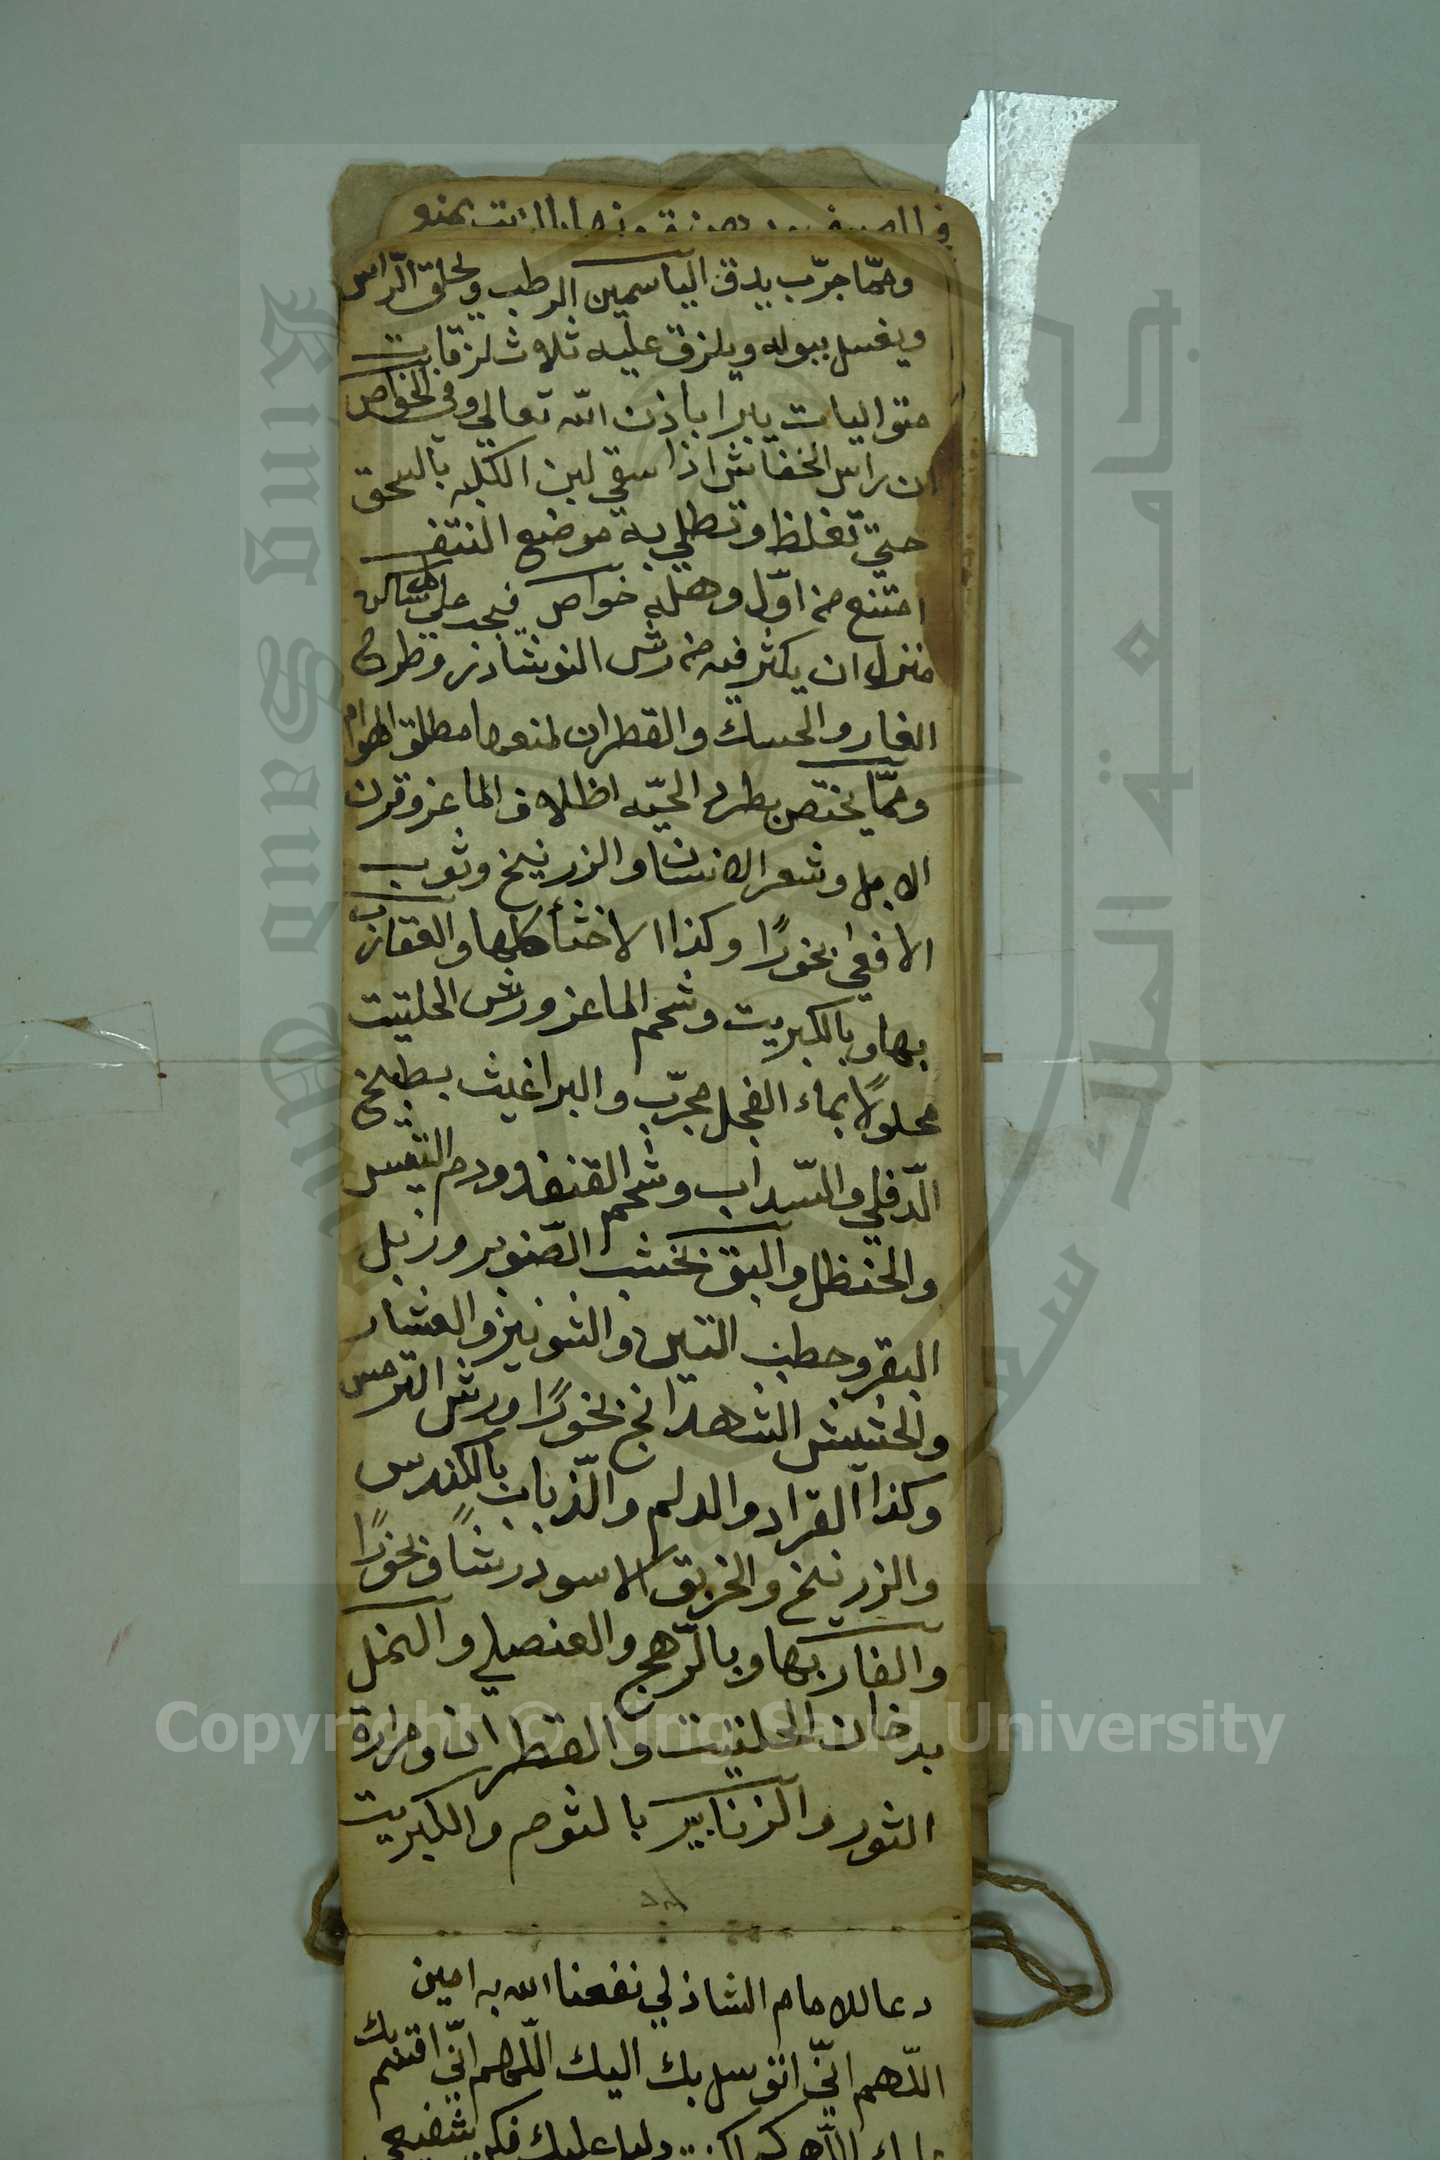 ومما جرّب يدق الياسمين الرطب ويحلق الرّاس
ويغسل ببوله ويلزق عليه ثلاث لزقات
متواليات يبرا باذن الله تعالي وفي الخواص
ان راس الخفاش اذا سقي لبن الكلبه بالسحق
حتي تغلظ وتطلي به موضع النتف
امتنع من اوّل وهله خواص فيجب علي كل ساكن
منزل ان يكثر فيه من رش النوشادر وطرح
الغار والحسك والقطران لمنعها مطلق الهوام
وممّا يختص بطرد الحيّه اظلاف الماعز وقرن
الايل وشعر الانسان والزرنيخ وثوب
الافعي بخورًا وكذا الاخثأ كلها والعقارب
بها وبالكبريت وشحم الماعز ورش الحلتيت
محلولًا بماء الفجل مجرّب والبراغيث بطبيخ
الدّفلي والسّداب وشحم القنفد ودم التيس
والحنظل والبق بخشب الصّنوبر وزبل
البقر وحطب التين والشونيز والعشار
والحشيش الشهدانج بخورًا ورش الترمس
وكذا القراد والدلم والذّباب بالكندس
والزرنيخ والخربق الاسود رشاً وبخورًا
والفار بها وبالرّهج والعنصلي والنمل
بدخان الحلتيت والقطران ومرارة
الثور والزنابير بالثوم والكبريت
دعا للامام الشاذلي نفعنا الله به امين
اللّهم انّي اتوسل بك اليك اللّهم انّي اقسم بك
عليك اللّهم كما كنت دليلي عليك فكن شفيعي
King Saud University
جامعة الملك سعود
Copyright © King Saud University